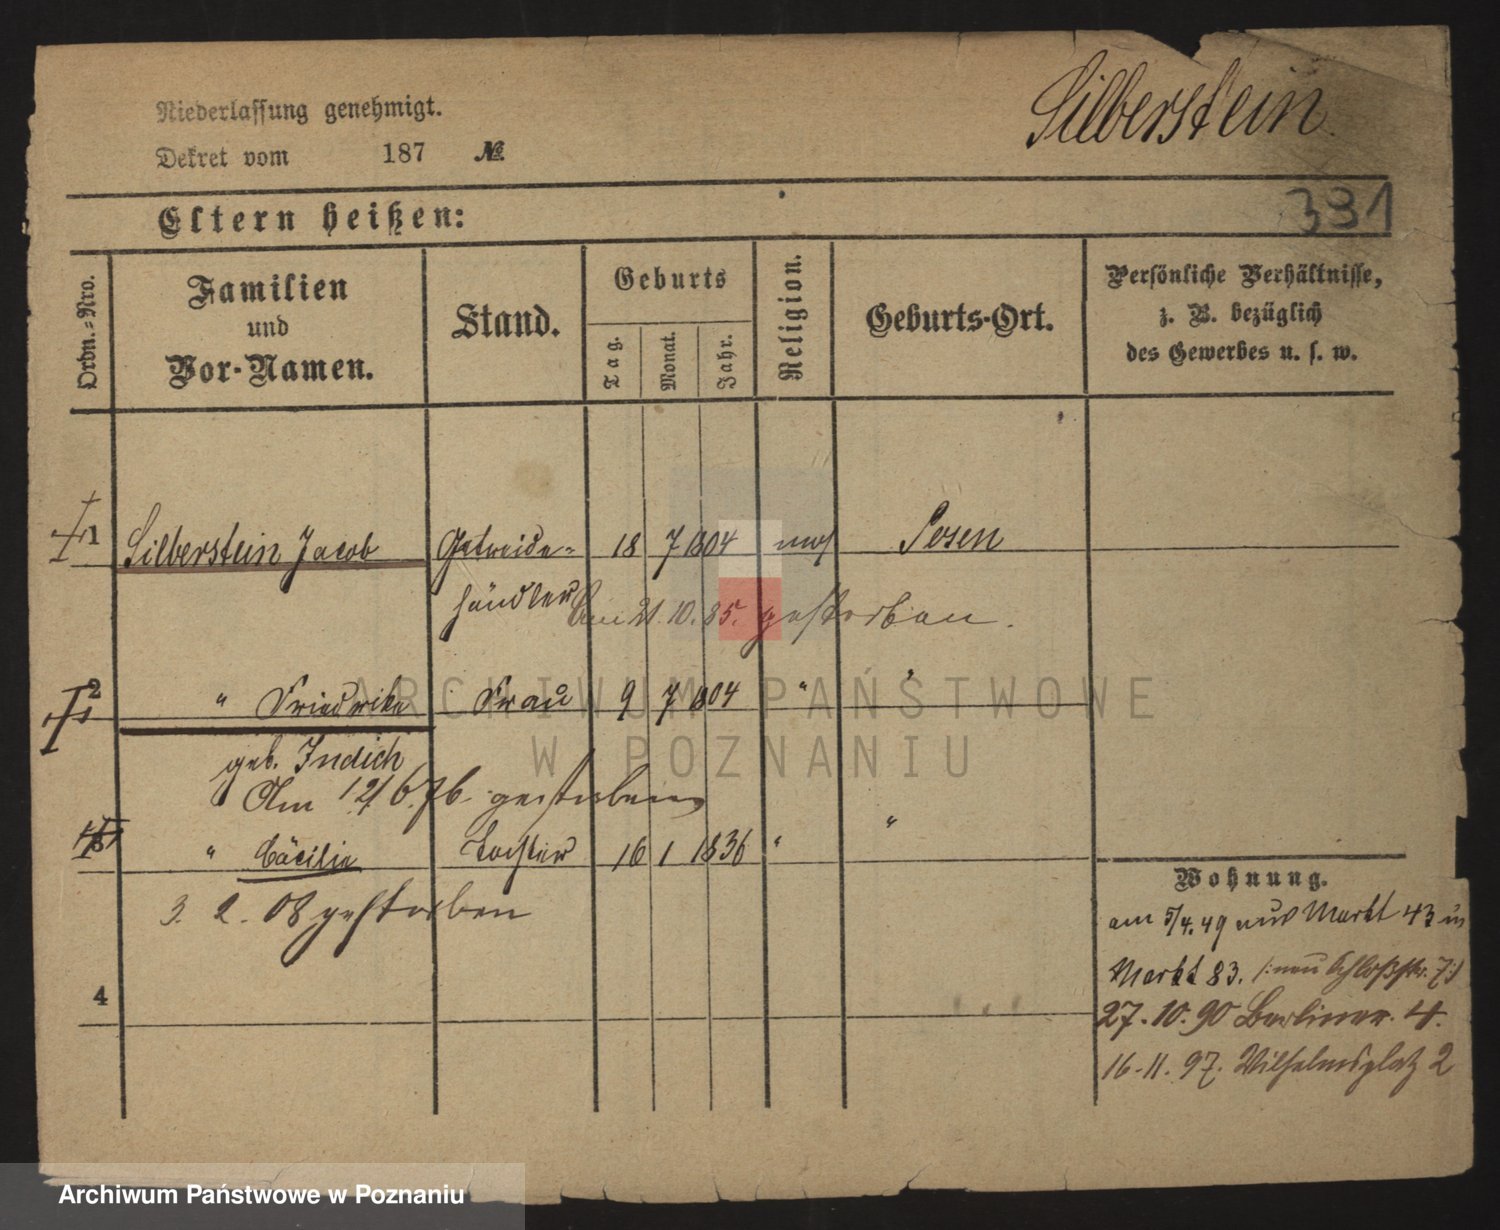 Niederlassung genehmigt.
Dekret vom 187 №
Silberstein
391
Eltern heißen:
Ordn.-Nro.
Familien
und
Vor-Namen.
Stand.
Geburts
Tag.
Monat.
Jahr.
Religion.
Geburts-Ort.
Persönliche Verhältnisse,
z. B. bezüglich
des Gewerbes u. s. w.
1 Silberstein Jacob Getreide- 18 7 1804 mos Posen
händler
Am 21. 10. 85. gestorben.
2 " Friedrike Frau 9 7 1804 " "
geb. Indich
Am 12/6.76. gestorben
3 " Cäcilie Tochter 16 1 1836 " "
3. 2. 08 gestorben
4
Wohnung.
am 5/4.49 aus Markt 43 in
Markt 83. /:neu Schloßstr. 7:/
27.10.90 Berliner. 4.
16.11.97. Wilhelmsplatz 2
ARCHIWUM PAŃSTWOWE
W POZNANIU
Archiwum Państwowe w Poznaniu